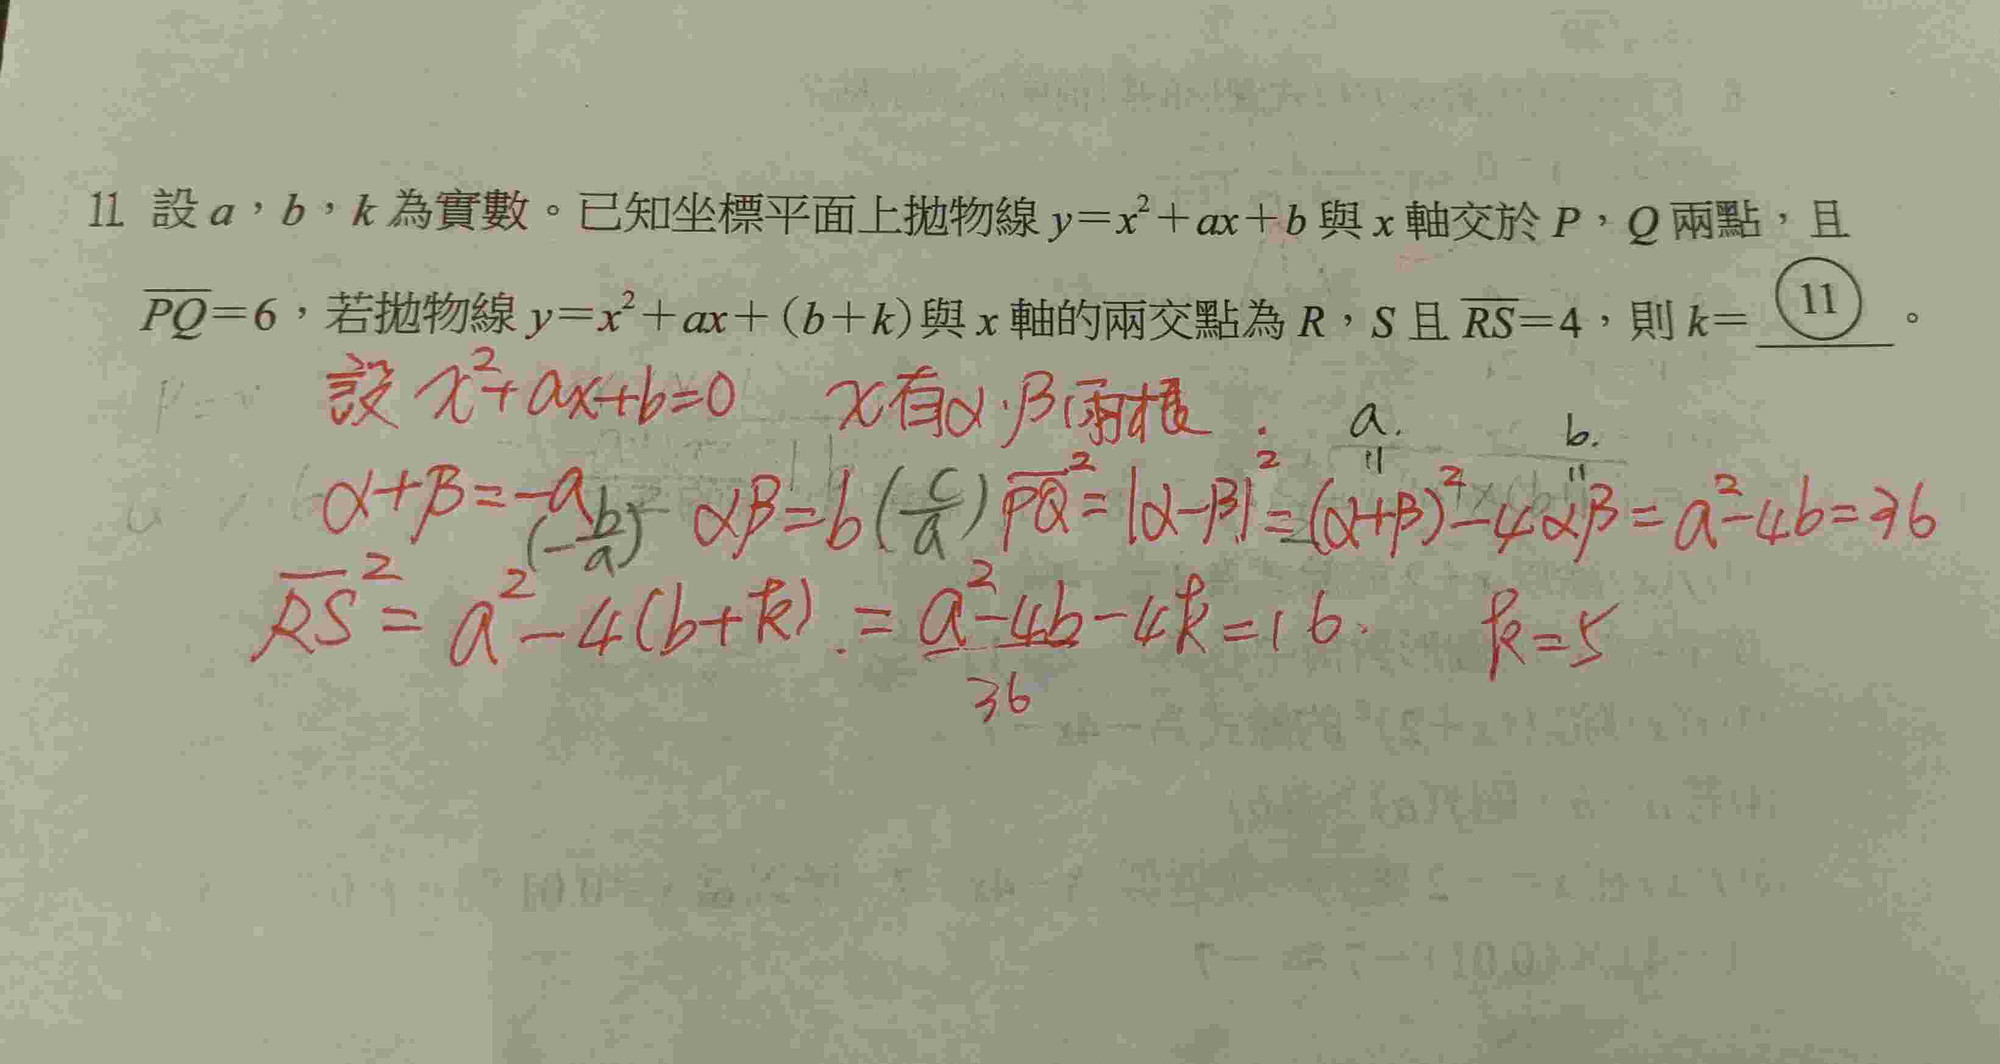 11 設 a，b，k 為實數。已知坐標平面上拋物線 y=x²+ax+b 與 x 軸交於 P，Q 兩點，且
PQ=6，若拋物線 y=x²+ax+(b+k)與 x 軸的兩交點為 R，S 且 RS=4，則 k= 11 。
設 x²+ax+b=0 x有α.β兩根.
a. b.
α+β=-a (-b/a) αβ=b (c/a) PQ²=|α-β|²=(α+β)²-4αβ=a²-4b=36
RS²=a²-4(b+k).=a²-4b-4k=16. k=5
36